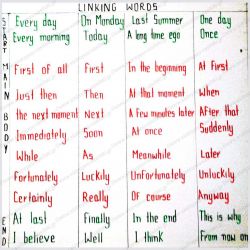 LINKING WORDS
START
Every day On Monday Last Summer One day
Every morning Today A long time ago Once
MAIN BODY
First of all First In the beginning At First
Just then Then At that moment When
the next moment Next A few minutes later After that
Immediately Soon At once Suddenly
While As Meanwhile Later
Fortunately Luckily Unfortunately Unluckily
Certainly Really Of course Anyway
END
At last Finally In the end This is why
I believe Well I think From now on